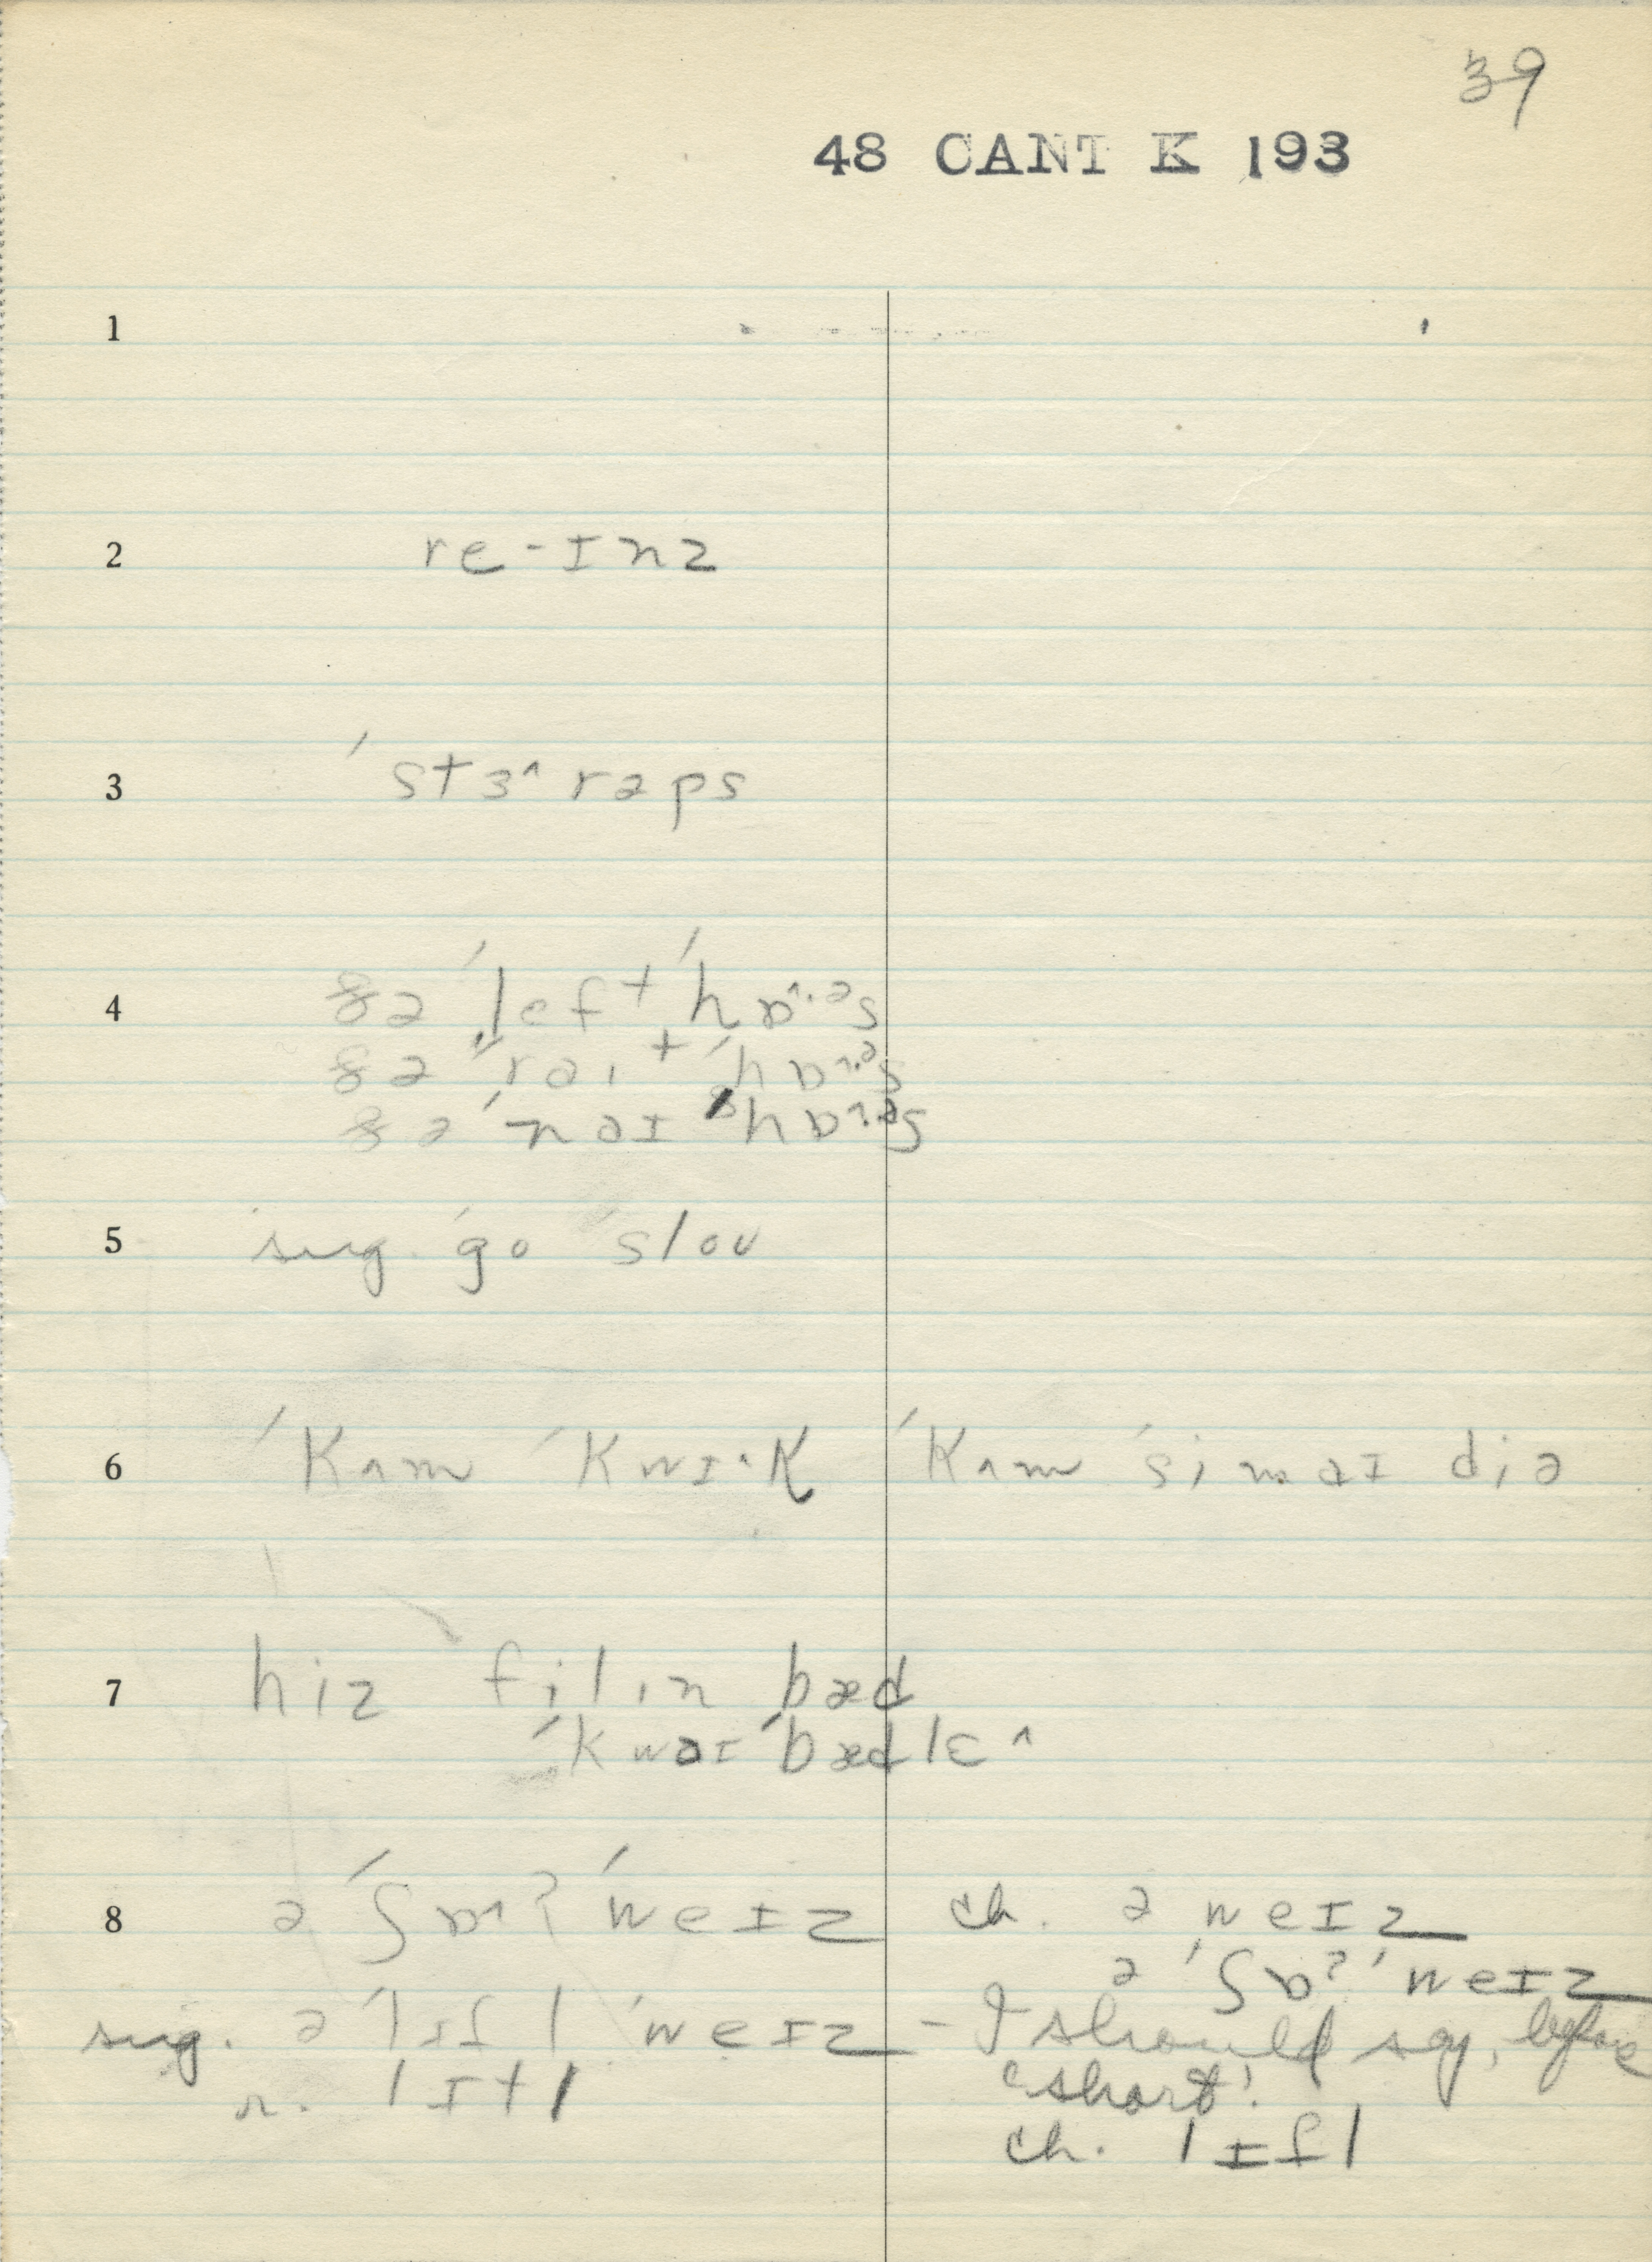 39
48 CANT K 193
1
2 re-ɪnz
3 ˈstɜ˄rəps
4 ðə ˈleft ˈhɒ˄·ᵊs
ðə ˈrait ˈhɒ˄·ᵊs
ðə ˈnaɪ ˈhɒ˄·ᵊs
5 sug. ˈgo ˈsloʊ
6 ˈKʌm ˈKwɪ·K ˈKʌm ˈsimaɪ diə
7 hiz filin bæd
ˈkwaɪ ˈbædlɛ˄
8 ə ˈʃɒ˄ʔ ˈweɪz ch. ə weɪz
ə ˈʃɒʔ ˈweɪz
sug. ə ˈlɪfl ˈweɪz - I should say, before
'short'.
r. lɪtl
ch. lɪfl